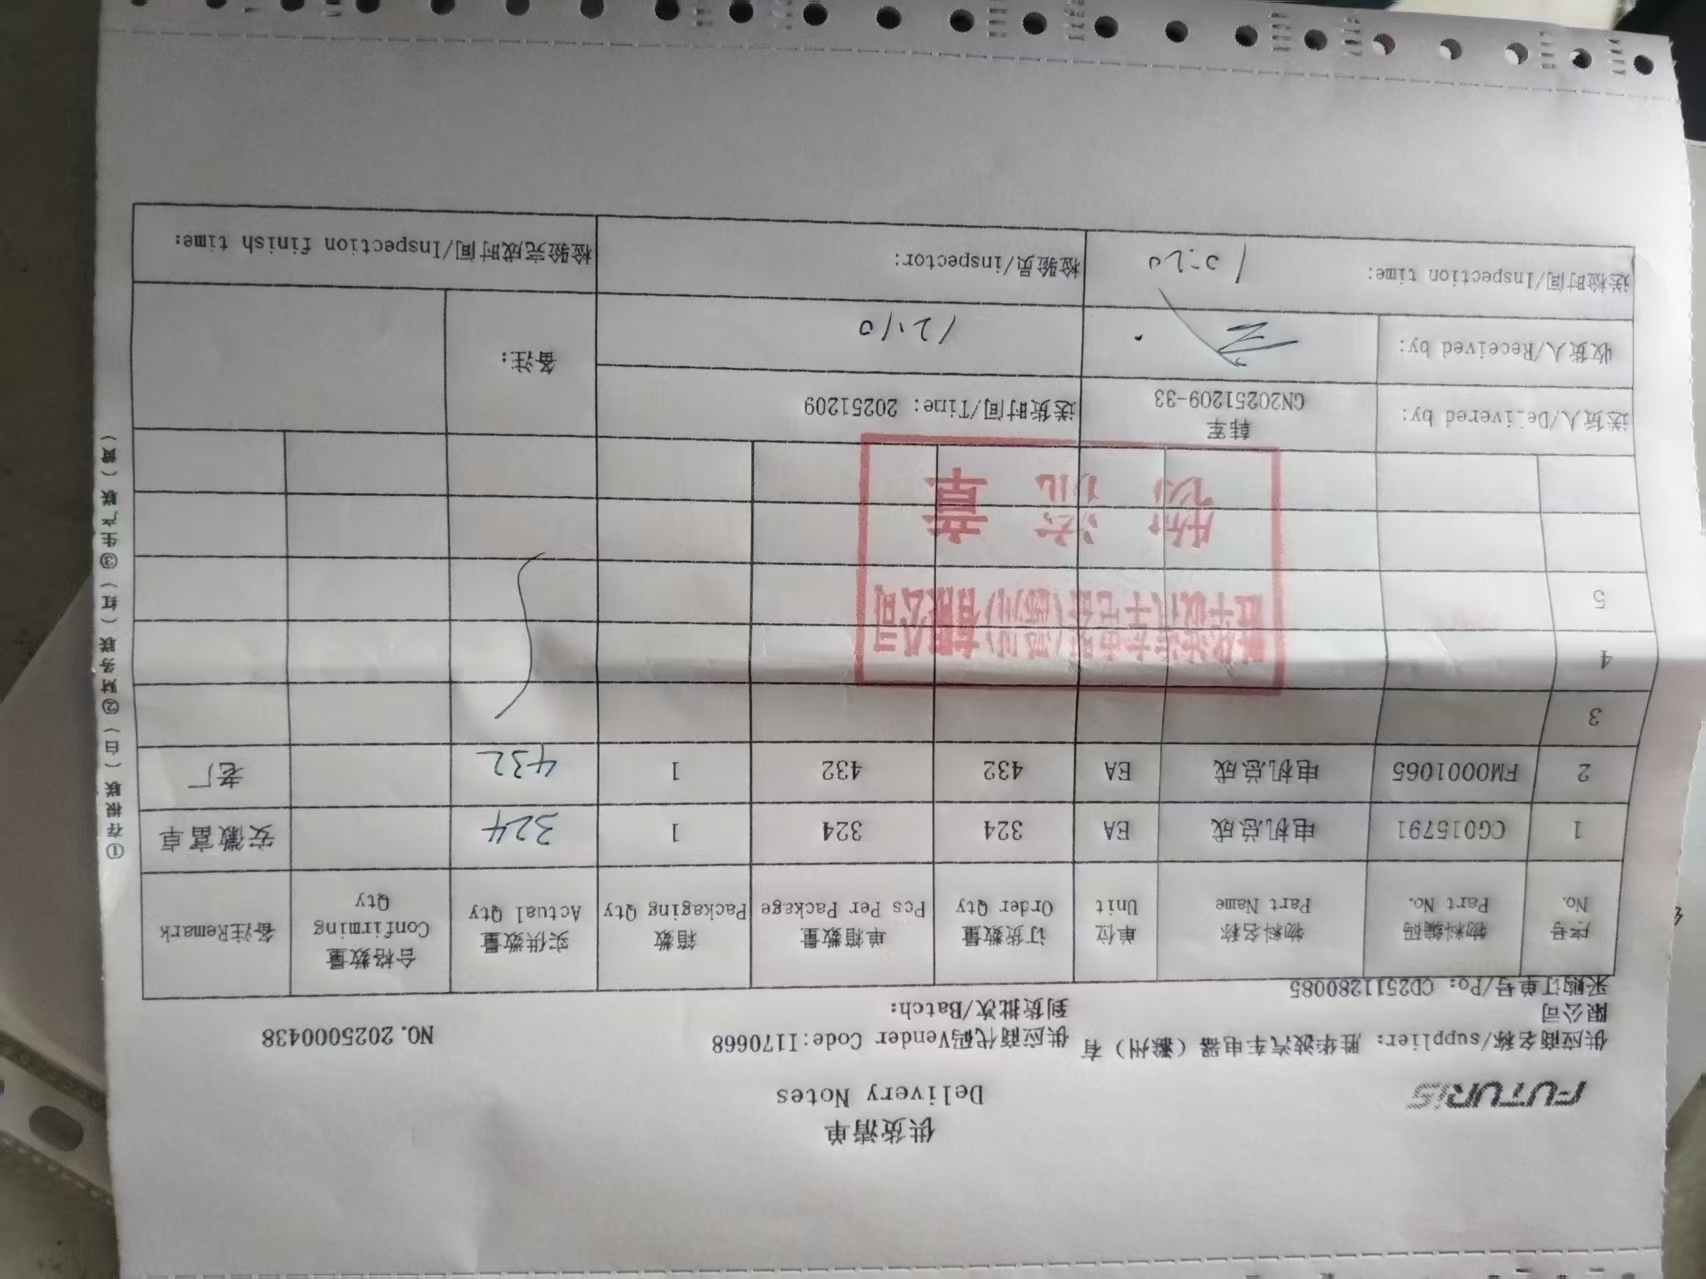 FUTURIS
供货清单
Delivery Notes
供应商名称/supplier: 胜华波汽车电器（滁州）有限公司
供应商代码Vender Code:I170668
NO. 2025000438
采购订单号/Po: CD2511280085
到货批次/Batch:
序号 No. 物料编码 Part No. 物料名称 Part Name 单位 Unit 订货数量 Order Qty 单箱数量 Pcs Per Package 箱数 Packaging Qty 实供数量 Actual Qty 合格数量 Confirming Qty 备注Remark
1 CG015791 电机总成 EA 324 324 1 324 安徽富卓
2 FM0001065 电机总成 EA 432 432 1 432 老厂
3
4
5
胜华波汽车电器（滁州）有限公司
物流
章
送货人/Delivered by: 韩军 GN20251209-33 送货时间/Time: 20251209 备注:
收货人/Received by: 12.10
送检时间/Inspection time: 10:20 检验员/inspector: 检验完成时间/Inspection finish time:
①存根联（白）②财务联（红）③生产联（黄）